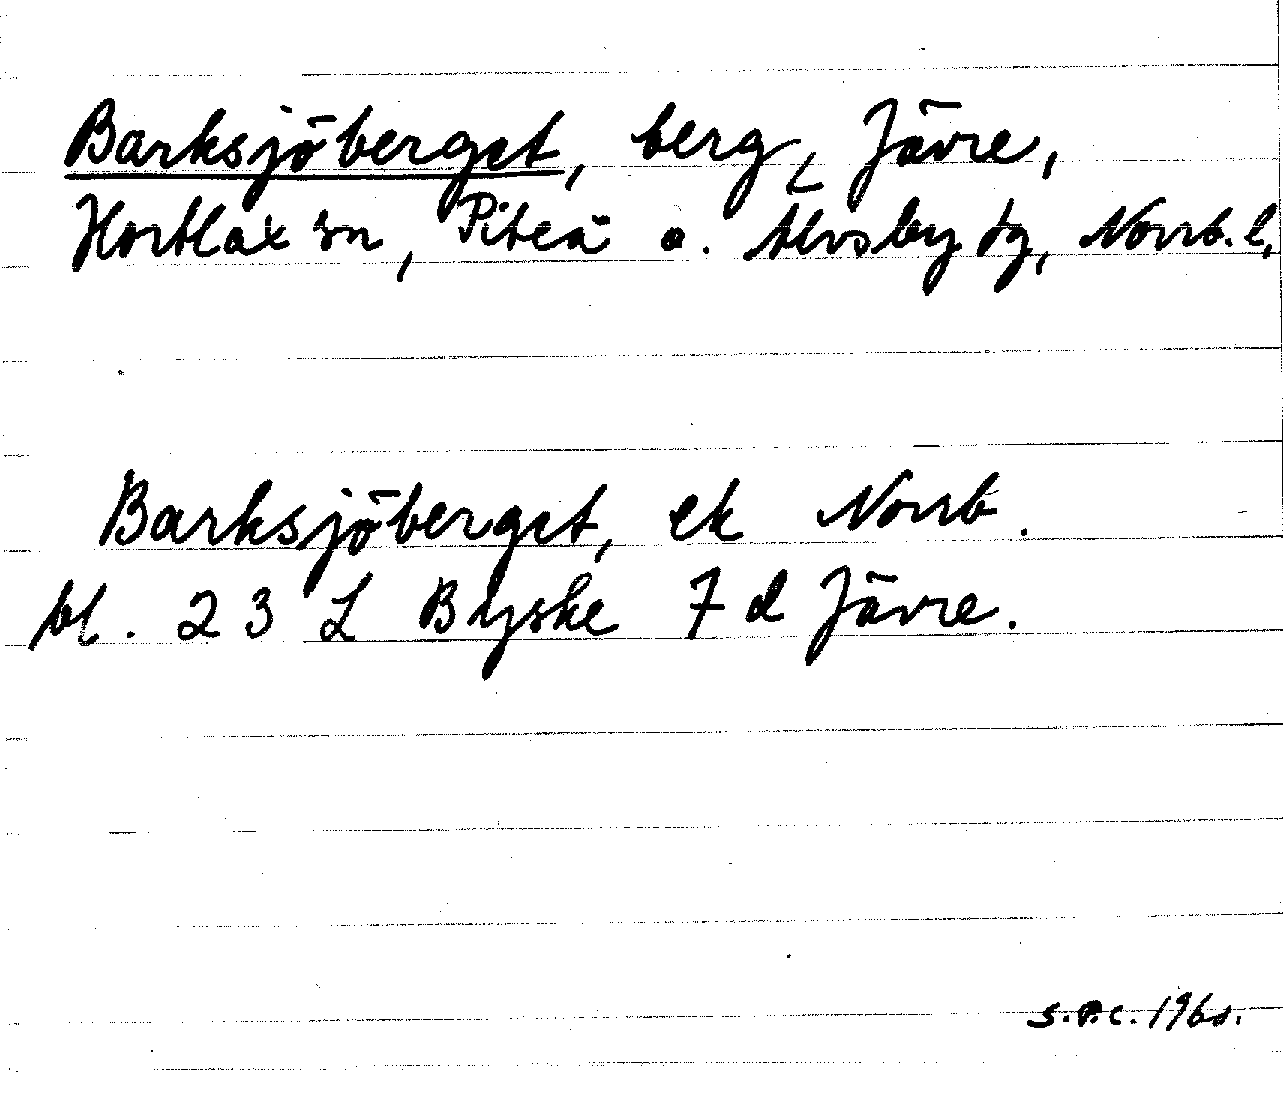 Barksjöberget, berg, Jävre,
Hortlax sn, Piteå o. Älvsby tg, Norrb. l.
Barksjöberget, ek Norrb.
bl. 23 L Byske 7 d Jävre.
S.P.C.